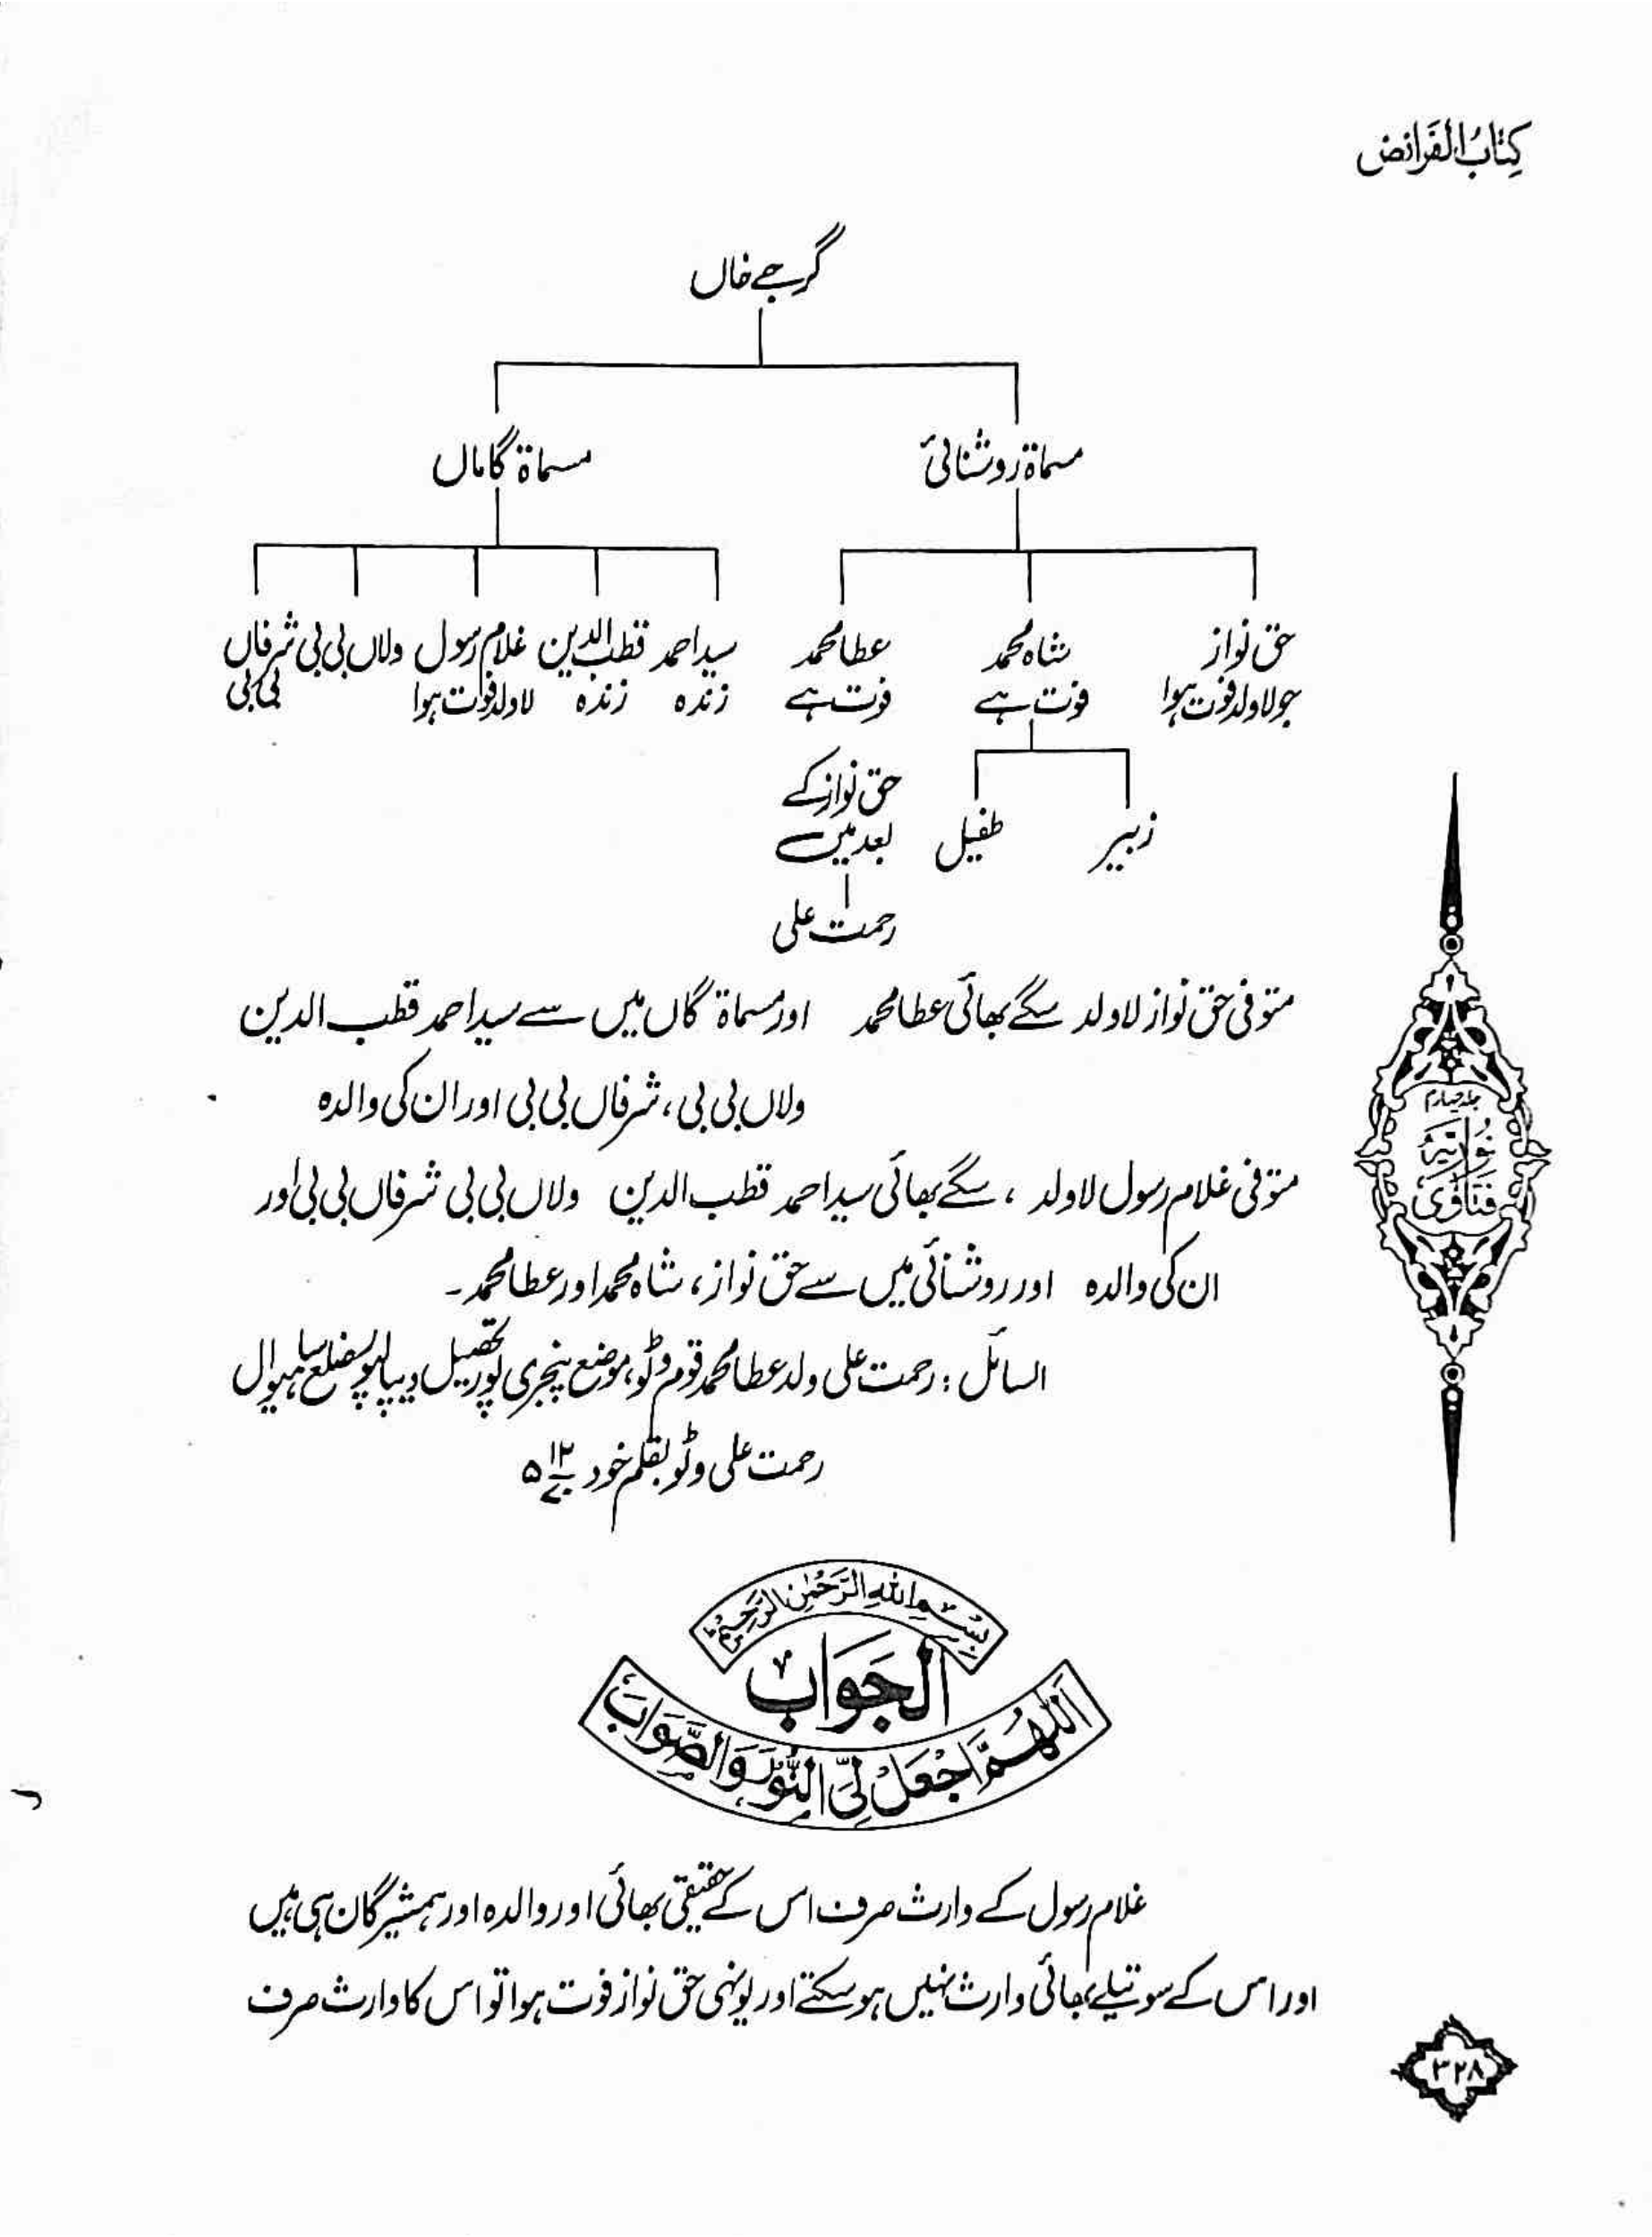 کِتَابُ الفَرَائض
گرجے خاں
مسماۃ روشنائی مسماۃ گاماں
حق نواز شاہ محمد عطا محمد سید احمد قطب الدین غلام رسول ولاں بی بی شرفاں
جو لاولد فوت ہوا فوت ہے فوت ہے زندہ زندہ لاولد فوت ہوا بی بی
حق نواز کے
بعد میں
زبیر طفیل
رحمت علی
متوفی حق نواز لاولد سگے بھائی عطا محمد اور مسماۃ گاں میں سے سید احمد قطب الدین
ولاں بی بی، شرفاں بی بی اور ان کی والدہ
متوفی غلام رسول لاولد ، سگے بھائی سید احمد قطب الدین ولاں بی بی شرفاں بی بی اور
ان کی والدہ اور روشنائی میں سے حق نواز، شاہ محمد اور عطا محمد۔
السائل : رحمت علی ولد عطا محمد قوم وٹو، موضع پنجری پور تحصیل دیپالپور ضلع ساہیوال
رحمت علی وٹو بقلم خود
جلد چہارم
فتاویٰ نوریہ
بِسْمِ اللہِ الرَّحْمٰنِ الرَّحِیْمِ
الجَوَاب
اَللّٰھُمَّ اجْعَلْ لِیَ النُّوْرَ وَالصَّوَابَ
غلام رسول کے وارث صرف اس کے حقیقی بھائی اور والدہ اور ہمشیرگان ہی ہیں
اور اس کے سوتیلے بھائی وارث نہیں ہو سکتے اور یونہی حق نواز فوت ہوا تو اس کا وارث صرف
۳۲۸